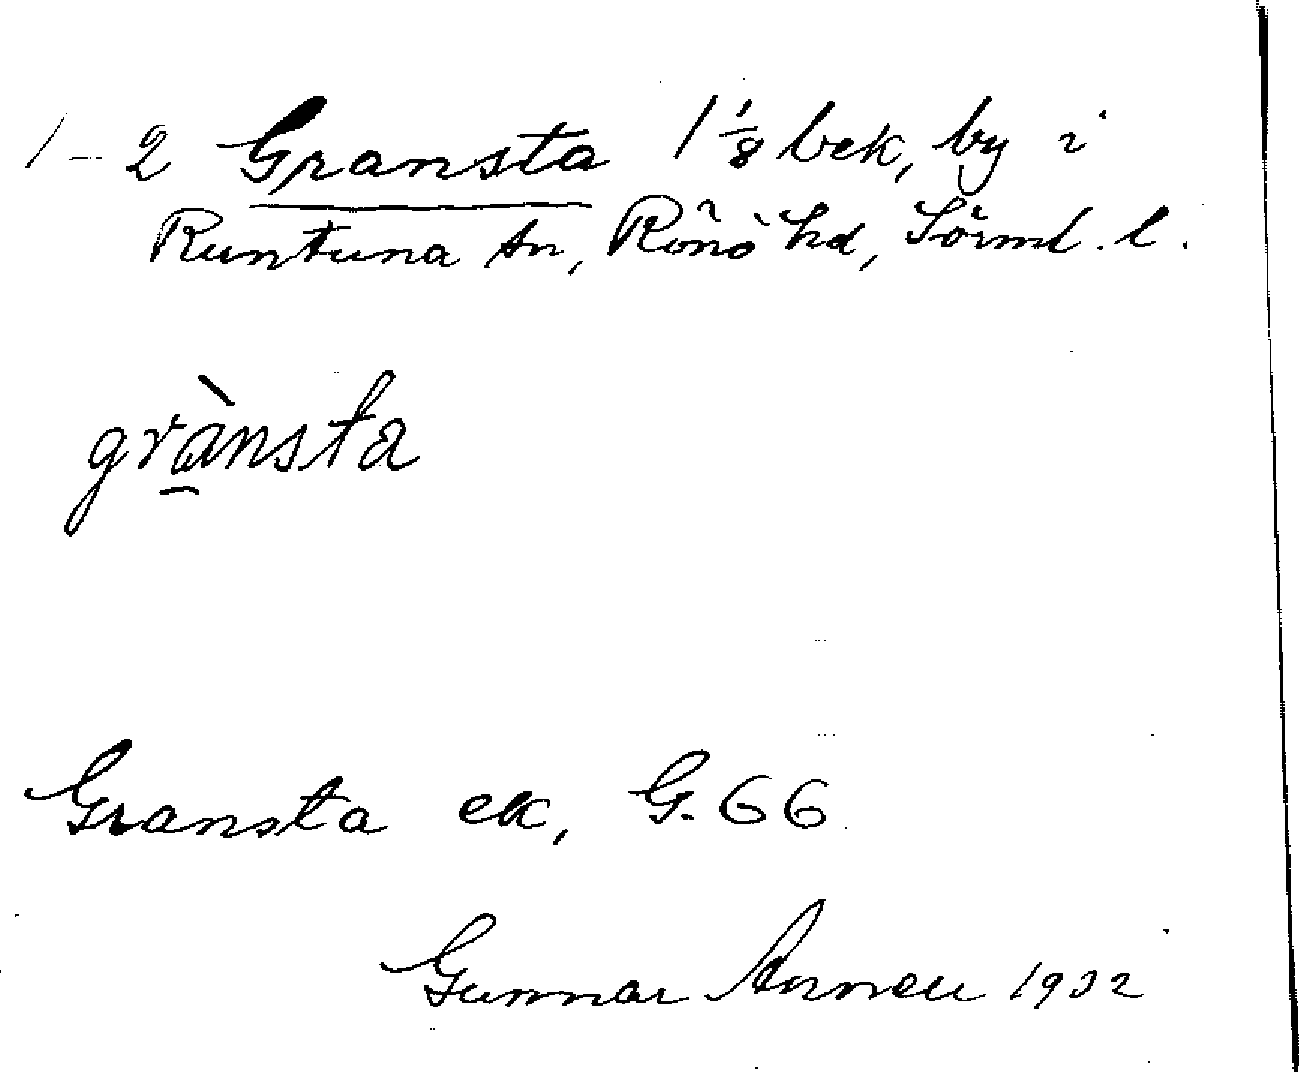 1-2 Gransta 1 1/8 bek, by i
Runtuna sn, Rönö hd, Sörml. l.
grànsta
Gransta ek, G. 66
Gunnar 1932